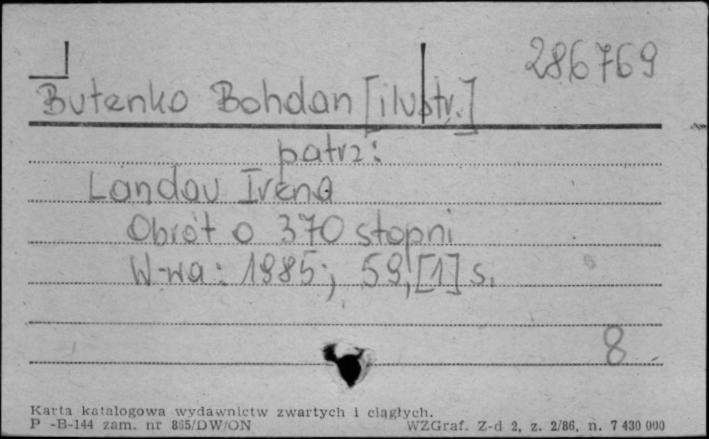 286769
Butenko Bohdan [ilustr.]
patrz:
Landau Irena
Obrót o 370 stopni
W-wa: 1985; 59, [1] s.
8
Karta katalogowa wydawnictw zwartych i ciągłych.
P -B-144 zam. nr 865/DW/ON WZGraf. Z-d 2, z. 2/86, n. 7 430 000